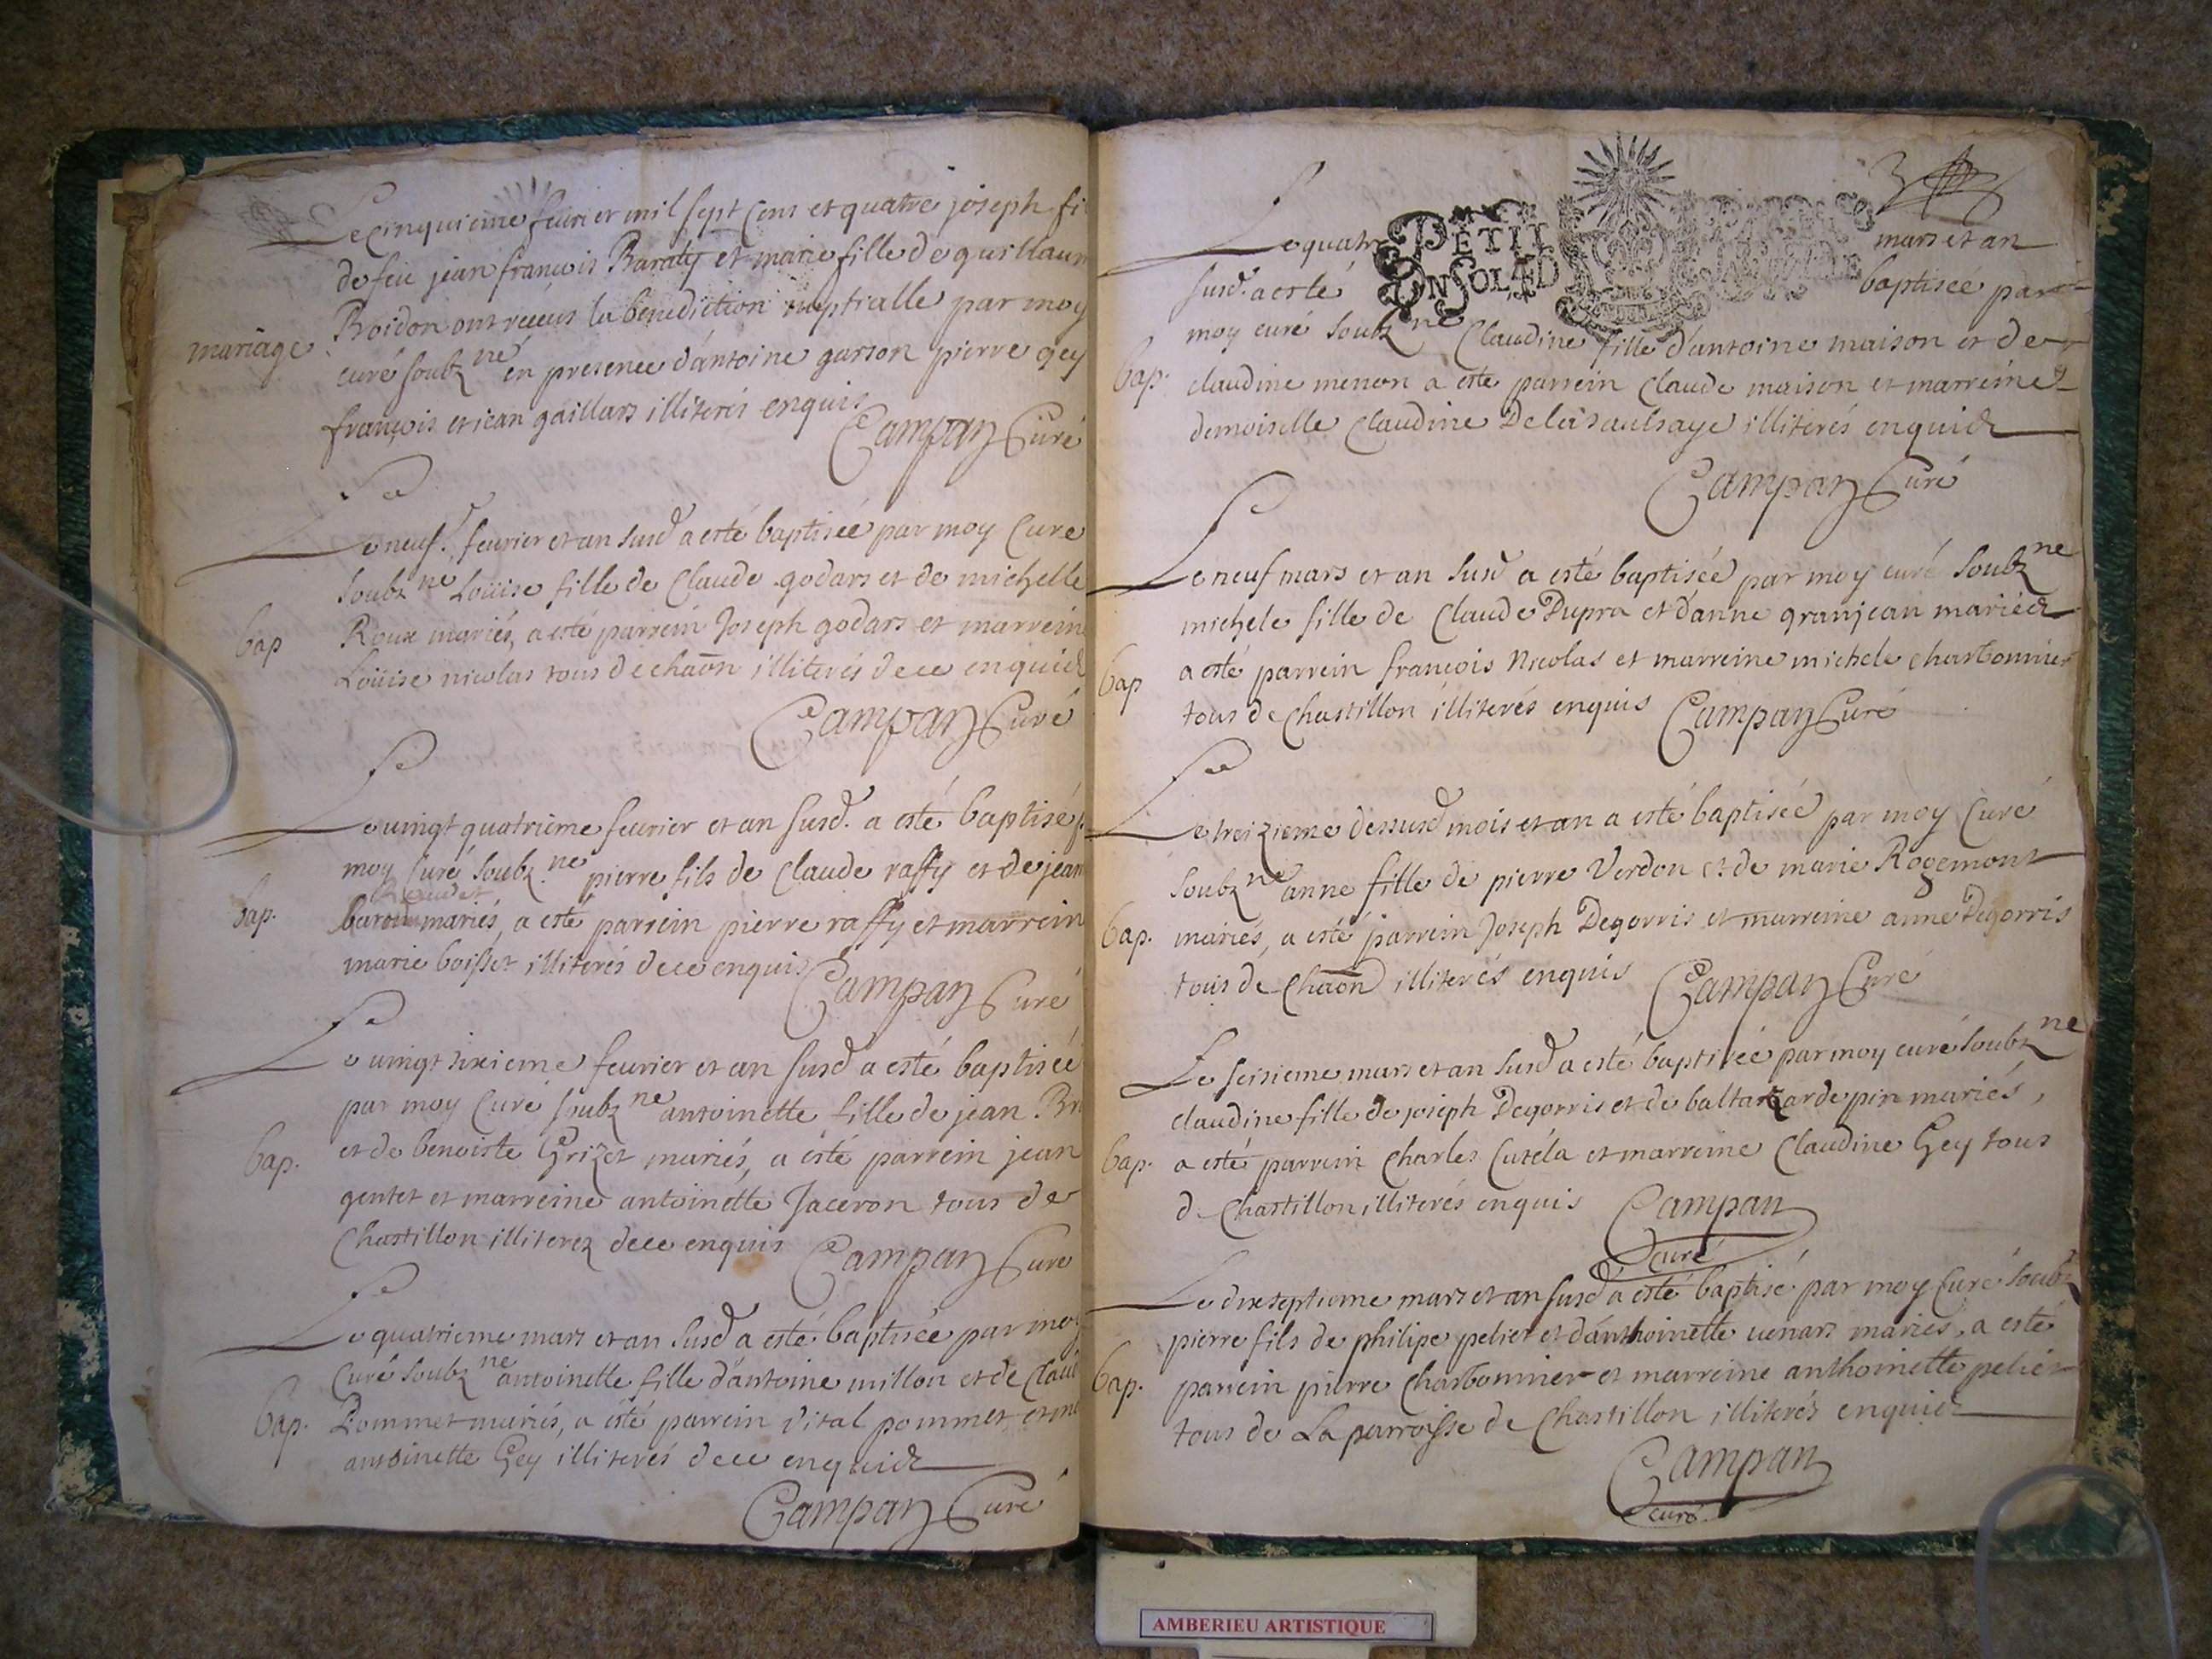 Le cinquieme feurier mil sept Cens et quatre joseph fi
de feu jean francois Baraty et marie fille de guillaum
Boidon ont receus la benediction nuptialle par moy
mariage
curé soubz né en presence d'antoine garson pierre gey
francois et jean gaillars illiterés enquis
Campan Curé
Le neuf. feurier et an susd a esté baptisée par moy Curé
soubz né Loüise fille de Claude godars et de michelle
bap
Roux mariés, a esté parrein Joseph godars et marrein
Loüise nicolas tous de chaōn illiterés de ce enquid
Campan Curé
Le uingt quatrieme feurier et an susd. a esté baptisé p
moy Curé soubz né pierre fils de Claude raffy et de jean
bap.
mariés, a esté parrein pierre raffy et marrein
marie boisset illiterés de ce enquis
Campan Curé
Le uingt sixieme feurier et an susd a esté baptisée
par moy Curé soubz né antoinette fille de jean Br
bap.
et de benoiste Grizet mariés, a esté parrein jean
gentet et marreine antoinette Jaceron tous de
Chastillon illiterez de ce enquis
Campan Curé
Le quatrieme mars et an susd a esté baptisée par moy
Curé soubz né antoinette fille d'antoine millon et de Claud
bap.
Pommet mariés, a esté parrein Vital pommet et ma
antoinette Gey illiterés de ce enquid
Campan Curé
3
PETIT PAPIER
UN SOL 4 D LA FEUILLE
Le quatr mars et an
susd. a esté baptisée par
moy curé soubz né Claudine fille d'antoine maison et de
bap.
claudine menon a este parrein Claude maison et marreine
demoiselle Claudine De la saulsaye illiterés enquid
Campan Curé
Le neuf mars et an susd a esté baptisée par moy curé soubz né
michele fille de Claude Dupra et d'anne granjean mariéd
bap
a esté parrein francois Nicolas et marreine michele charbonnier
tous de Chastillon illiterés enquis
Campan Curé
Le treizieme dessusd mois et an a esté baptisée par moy Curé
soubz né anne fille de pierre Verdon et de marie Rogemont
bap.
mariés, a esté parrein Joseph Degorris et marreine anne Degorris
tous de Chaōn illiterés enquis
Campan Curé
Le seisieme mars et an susd a esté baptisée par moy curé soubz né
claudine fille de joseph Degorris et de baltazarde pin mariés,
bap.
a esté parrein Charles Cutéla et marreine Claudine Gey tous
de Chastillon illiterés enquis
Campan
curé
Le dixseptieme mars et an susd a esté baptisé par moy Curé soubz
pierre fils de philipe pelier et d'anthoinette uenars mariés, a esté
bap.
parrein pierre Charbonnier et marreine anthoinette pelier
tous de La parroisse de Chastillon illiterés enquid
Campan
curé.
AMBERIEU ARTISTIQUE